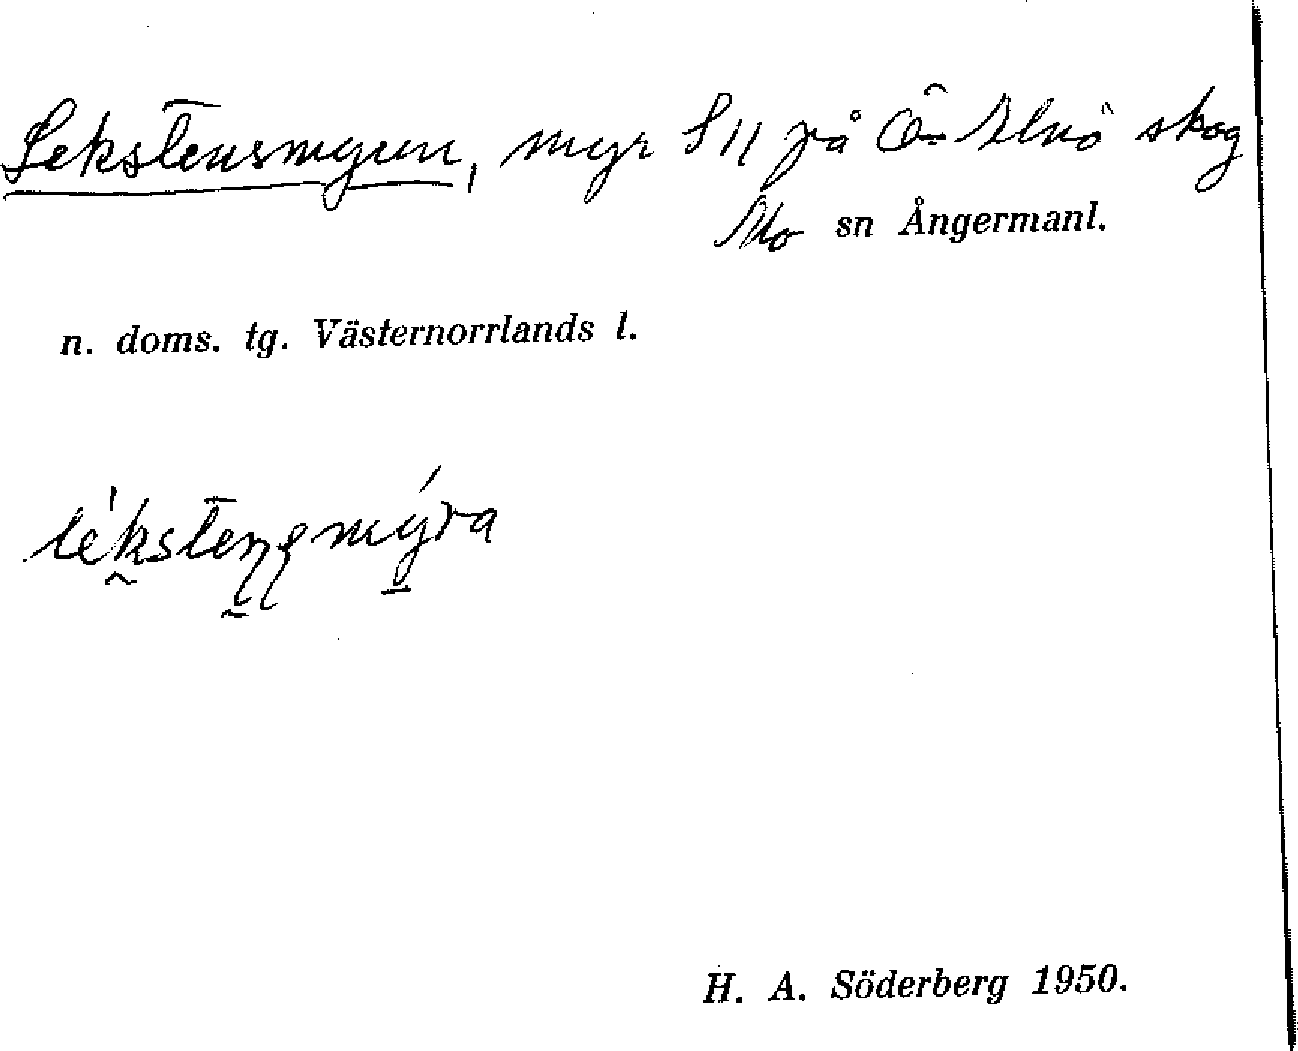 Lekstensmyren, myr S11 på Ö- Älnö skog
Mo sn Ångermanl.
n. doms. tg. Västernorrlands l.
lékstensmýra
H. A. Söderberg 1950.